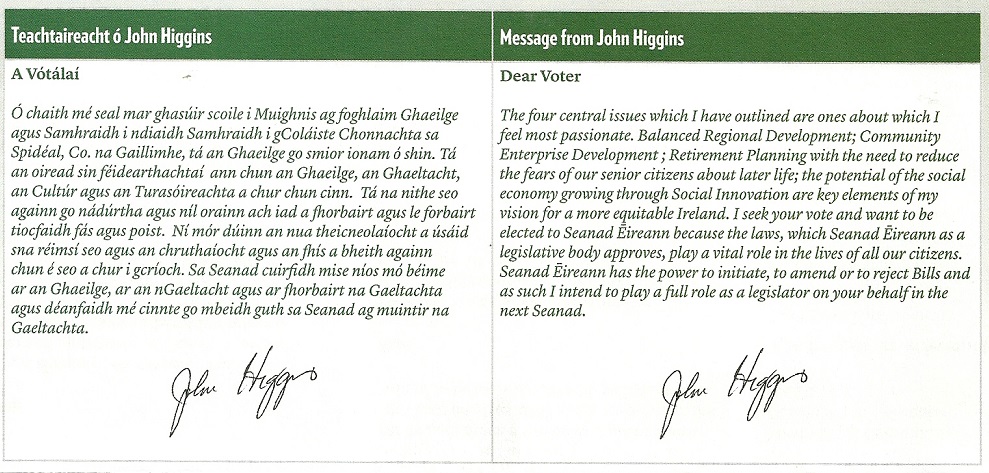 Teachtaireacht ó John Higgins
A Vótálaí
Ó chaith mé seal mar ghasúir scoile i Muighnis ag foghlaim Ghaeilge
agus Samhraidh i ndiaidh Samhraidh i gColáiste Chonnachta sa
Spidéal, Co. na Gaillimhe, tá an Ghaeilge go smior ionam ó shin. Tá
an oiread sin féidearthachtaí ann chun an Ghaeilge, an Ghaeltacht,
an Cultúr agus an Turasóireachta a chur chun cinn. Tá na nithe seo
againn go nádúrtha agus níl orainn ach iad a fhorbairt agus le forbairt
tiocfaidh fás agus poist. Ní mór dúinn an nua theicneolaíocht a úsáid
sna réimsí seo agus an chruthaíocht agus an fhís a bheith againn
chun é seo a chur i gcríoch. Sa Seanad cuirfidh mise níos mó béime
ar an Ghaeilge, ar an nGaeltacht agus ar fhorbairt na Gaeltachta
agus déanfaidh mé cinnte go mbeidh guth sa Seanad ag muintir na
Gaeltachta.
John Higgins
Message from John Higgins
Dear Voter
The four central issues which I have outlined are ones about which I
feel most passionate. Balanced Regional Development; Community
Enterprise Development ; Retirement Planning with the need to reduce
the fears of our senior citizens about later life; the potential of the social
economy growing through Social Innovation are key elements of my
vision for a more equitable Ireland. I seek your vote and want to be
elected to Seanad Ēireann because the laws, which Seanad Ēireann as a
legislative body approves, play a vital role in the lives of all our citizens.
Seanad Ēireann has the power to initiate, to amend or to reject Bills and
as such I intend to play a full role as a legislator on your behalf in the
next Seanad.
John Higgins